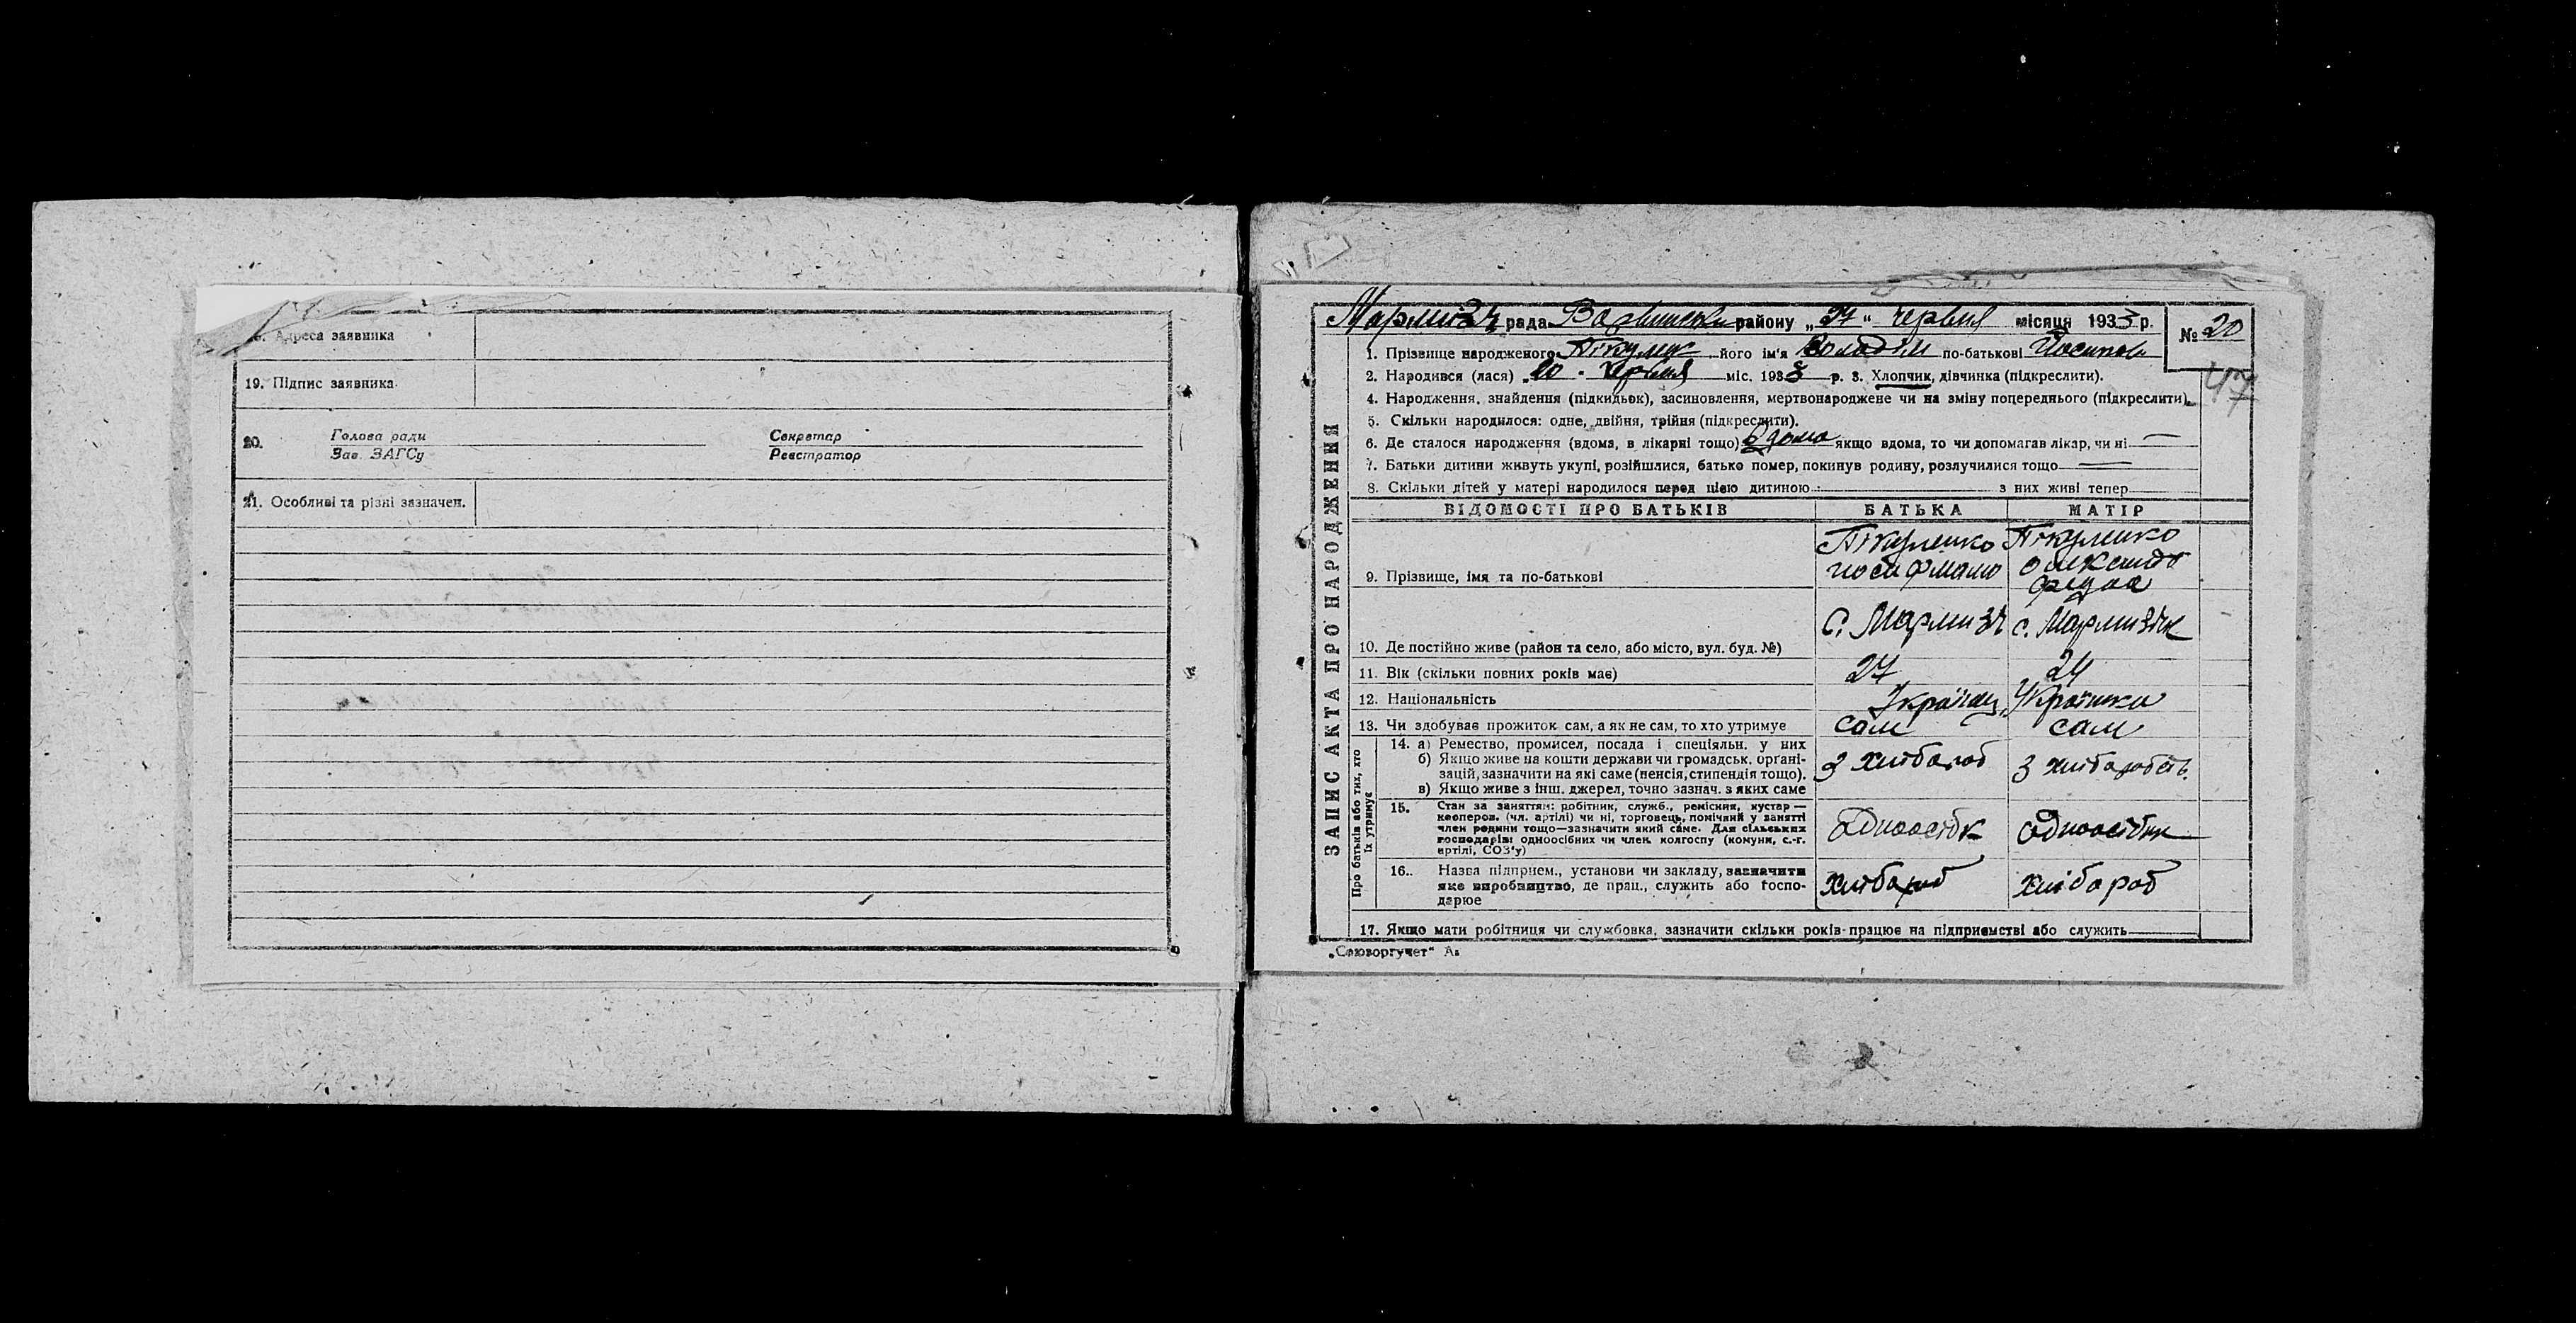 18. Адреса заявника
19. Підпис заявника
20. Голова ради Секретар
Зав. ЗАГСу Реєстратор
21. Особливі та різні зазначен.
ЗАПИС АКТА ПРО НАРОДЖЕННЯ
рада району „27“ червня місяця 1933 р. № 20
47
1. Прізвище народженого Пікулик його ім'я Володім по-батькові Йосипов
2. Народився (лася) „20 червня міс. 1933 р. 3. Хлопчик, дівчинка (підкреслити).
4. Народження, знайдення (підкидьок), засиновлення, мертвонароджене чи на зміну попереднього (підкреслити).
5. Скільки народилося: одне, двійня, трійня (підкреслити).
6. Де сталося народження (вдома, в лікарні тощо) вдома якщо вдома, то чи допомагав лікар, чи ні —
7. Батьки дитини живуть укупі, розійшлися, батько помер, покинув родину, розлучилися тощо —
8. Скільки дітей у матері народилося перед цією дитиною з них живі тепер
ВІДОМОСТІ ПРО БАТЬКІВ БАТЬКА МАТІР
Пікуленко Пікуленко
9. Прізвище, імя та по-батькові
с. Мармизі с. Мармизік
10. Де постійно живе (район та село, або місто, вул. буд. №)
11. Вік (скільки повних років має) 27 24
12. Національність Українец Українка
13. Чи здобуває прожиток сам, а як не сам, то хто утримує сам сам
Про батьків або тих, хто їх утримує
14. а) Ремество, промисел, посада і спеціяльн. у них
б) Якщо живе на кошти держави чи громадськ. органі-
зацій, зазначити на які саме (пенсія, стипендія тощо).
в) Якщо живе з інш. джерел, точно зазнач. з яких саме
з хлібороб з хлібороб
15. Стан за заняттям: робітник, служб., ремісник, кустар —
кооперов. (чл. артілі) чи ні, торговець, помічний у занятті
член родини тощо—зазначити який саме. Для сільських
господарів: одноосібних чи член колгоспу (комуни, с.-г.
артілі, СОЗ'у)
одноосібк одноосібник
16. Назва підприєм., установи чи закладу, зазначити
яке виробництво, де прац., служить або госпо-
дарює
хлібороб хлібороб
17. Якщо мати робітниця чи службовка, зазначити скільки років працює на підприємстві або служить
„Союзоргучет“